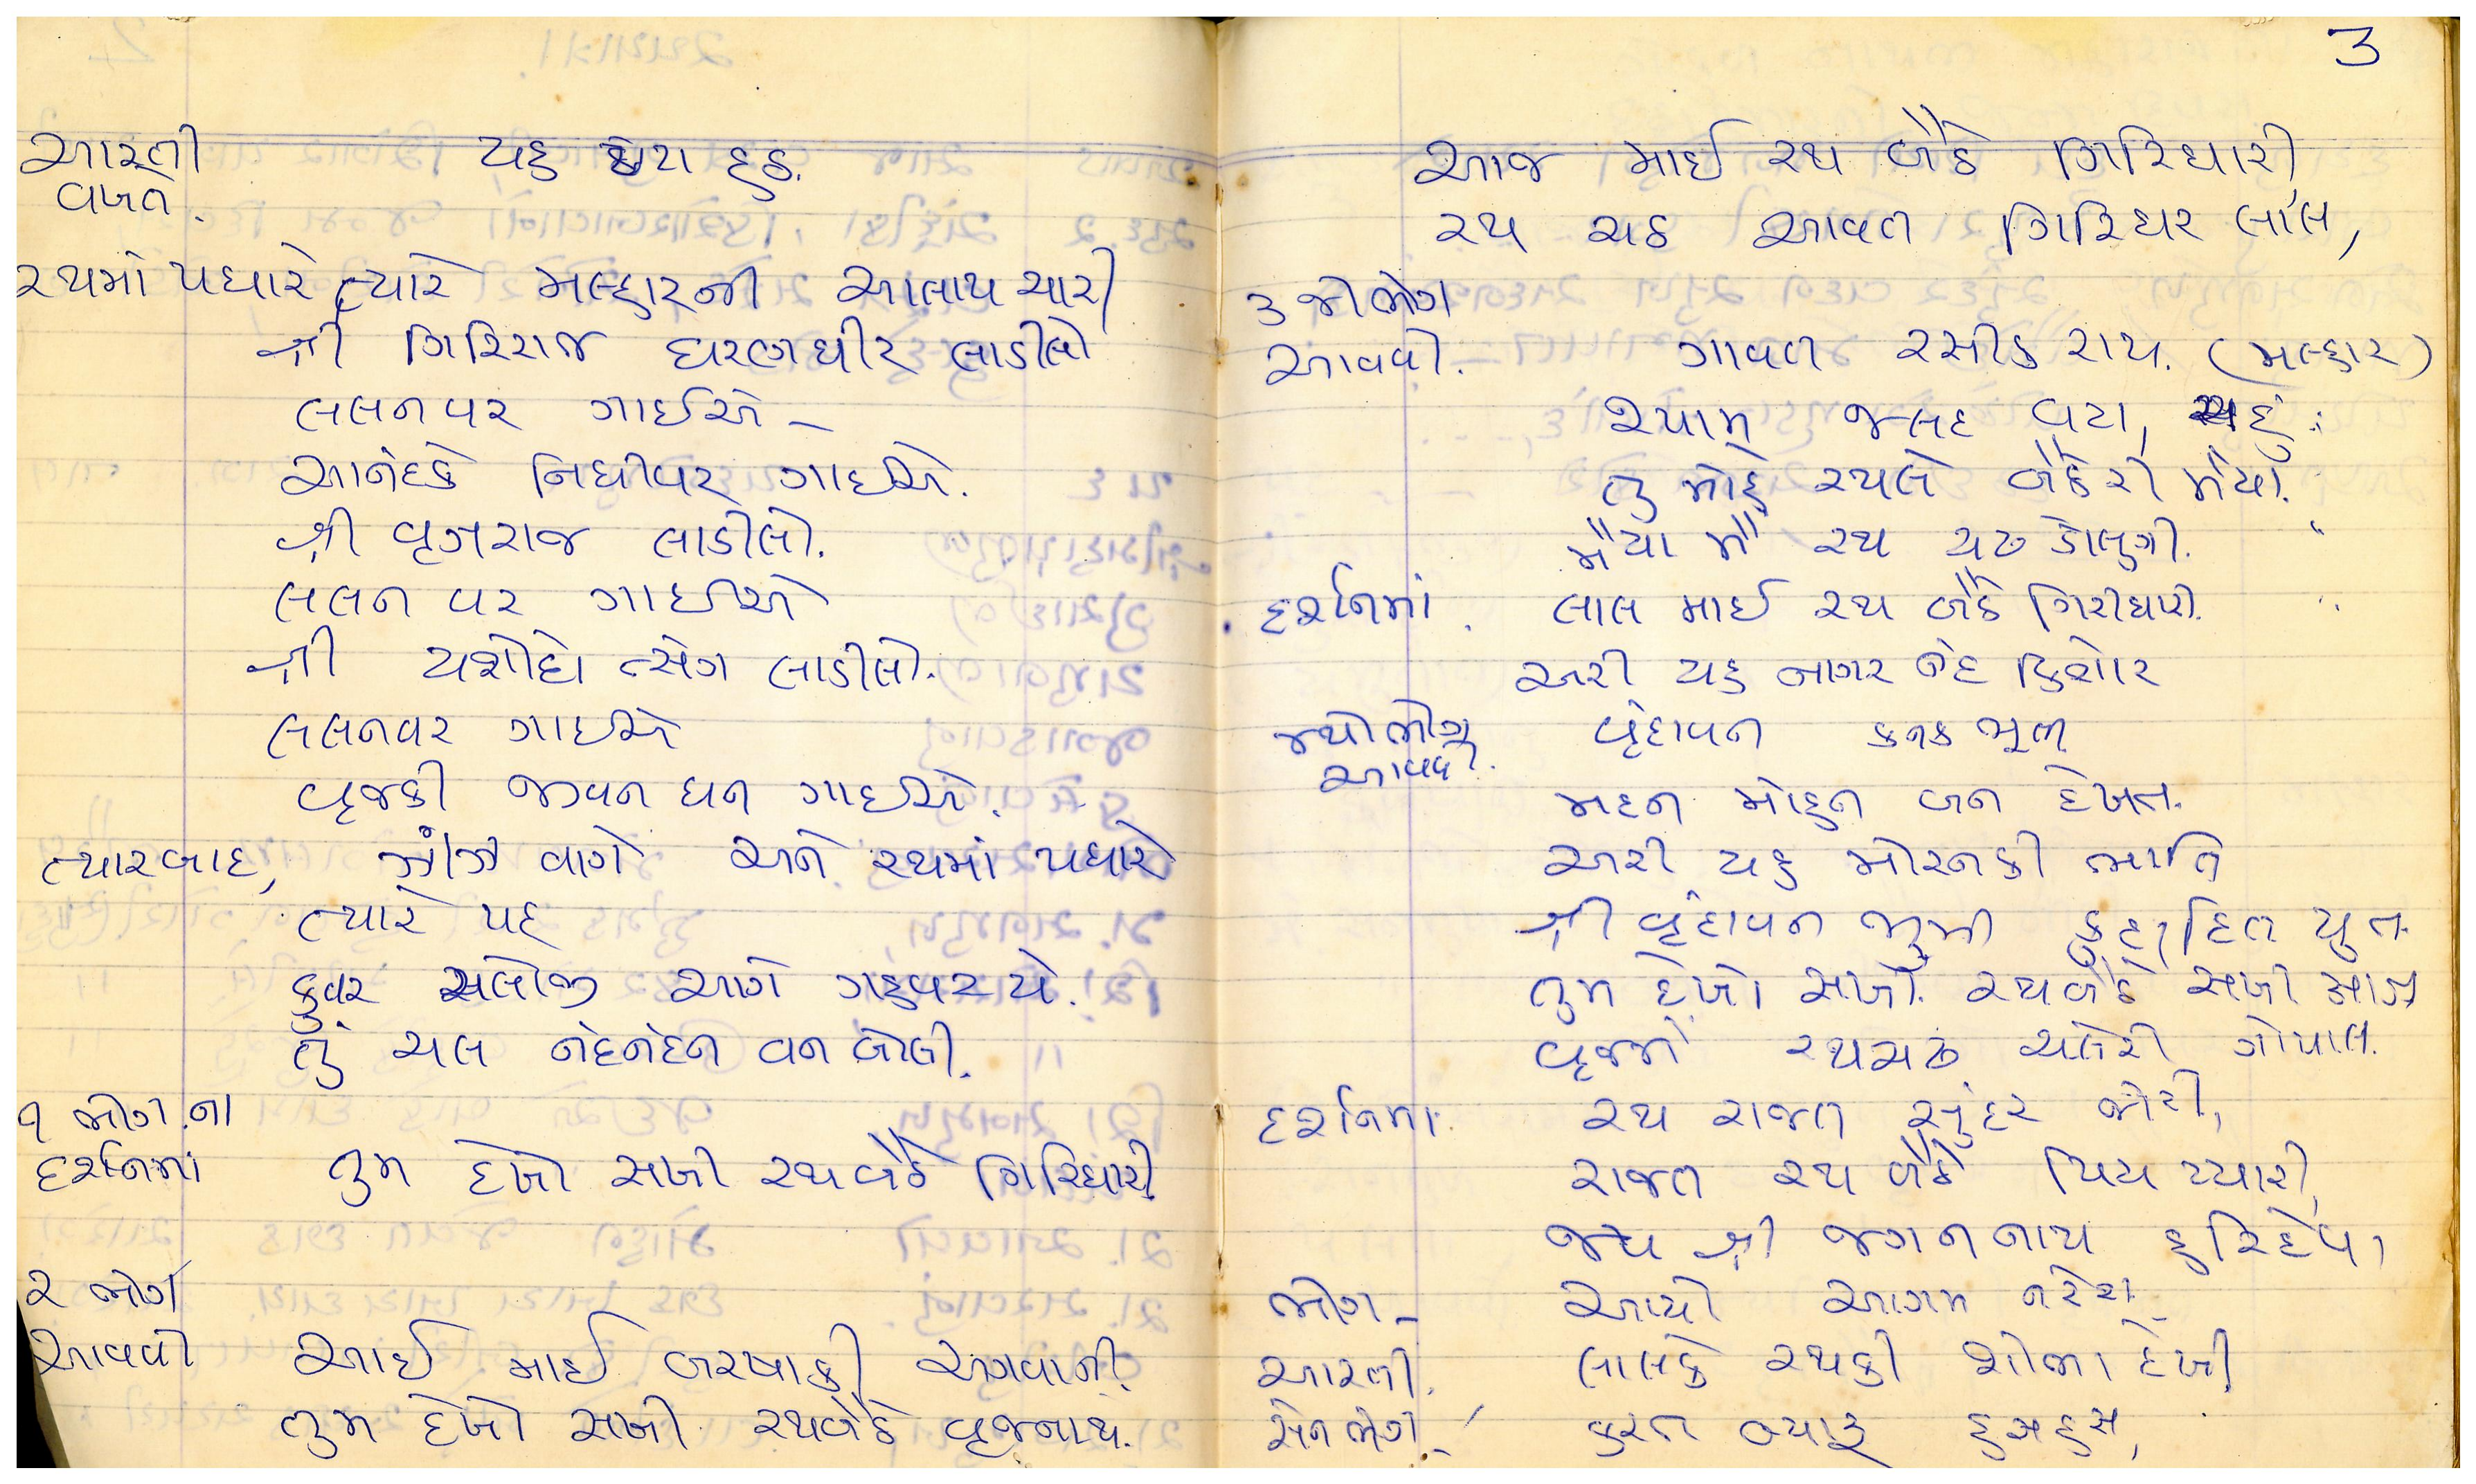 આરતી યહ દુઠ.
વખત.
રથમાં પધારે ત્યારે મલ્હારની આલાપ ચારી
શ્રી ગિરિરાજ ધરણ ધીર લાડીલો
લલન વર ગાઈએ –
આનંદકે નિધીવર ગાઈએ.
શ્રી વૃજરાજ લાડીલો.
લલન વર ગાઈએ
શ્રી યશોદો ત્સંગ લાડીલો.
લલનવર ગાઈએ
વૃજકી જીવન ધન ગાઈએ.
ત્યારબાદ, ઝાંઝ વાગે અને રથમાં પધારે
ત્યારે પદ
કુવર ચલોજી આગે ગહવર યે.
તું ચલ નંદનંદન વન બોલી.
૧ ભોગ.ના
દર્શનમાં તુમ દેખો સખી રથબૈઠે ગિરિધારી
૨ ભોગ
આવવો આઈ માઈ બરખાકી અગવાની.
તુમ દેખો સખી રથબૈઠે વૃજનાથ.
3
આજ માઈ રથ બૈઠે ગિરિધારી
રથ ચઠ આવત ગિરિધર લાલ,
૩ જો ભોગ
આવવો. ગાવત રસીક રાય. (મલ્હાર)
શ્યામ જલદ ઘટા,
તુ મોહે રથલે બૈઠેરી મૈયા.
મૈયા મૈ રથ ચઢ ડોલુગી. "
દર્શનમાં. લાલ માઈ રથ બૈઠે ગિરીધારી.
અરી યહ નાગર નંદ કિશોર
૪થો ભોગ વૃંદાવન કનક ભૂત
આવવો.
મદન મોહન બન દેખત.
અરી યહ મોરનકી ભાતિ
શ્રી વૃંદાવન ભુમી યુત
તુમ દેખો સખી. રથબૈઠે સખી આજ
વૃજમેં રથચઢ ચલેરી ગોપાલ.
દર્શનમાં રથ રાજત સુંદર જોરી,
રાજત રથ બૈઠે પિય પ્યારી,
જય શ્રી જગનનાથ હરિદેવા
ભોગ – આયો આગમ નરેશ
આરતી. લાલકે રથકી શોભા દેખી
સેન ભોગ –